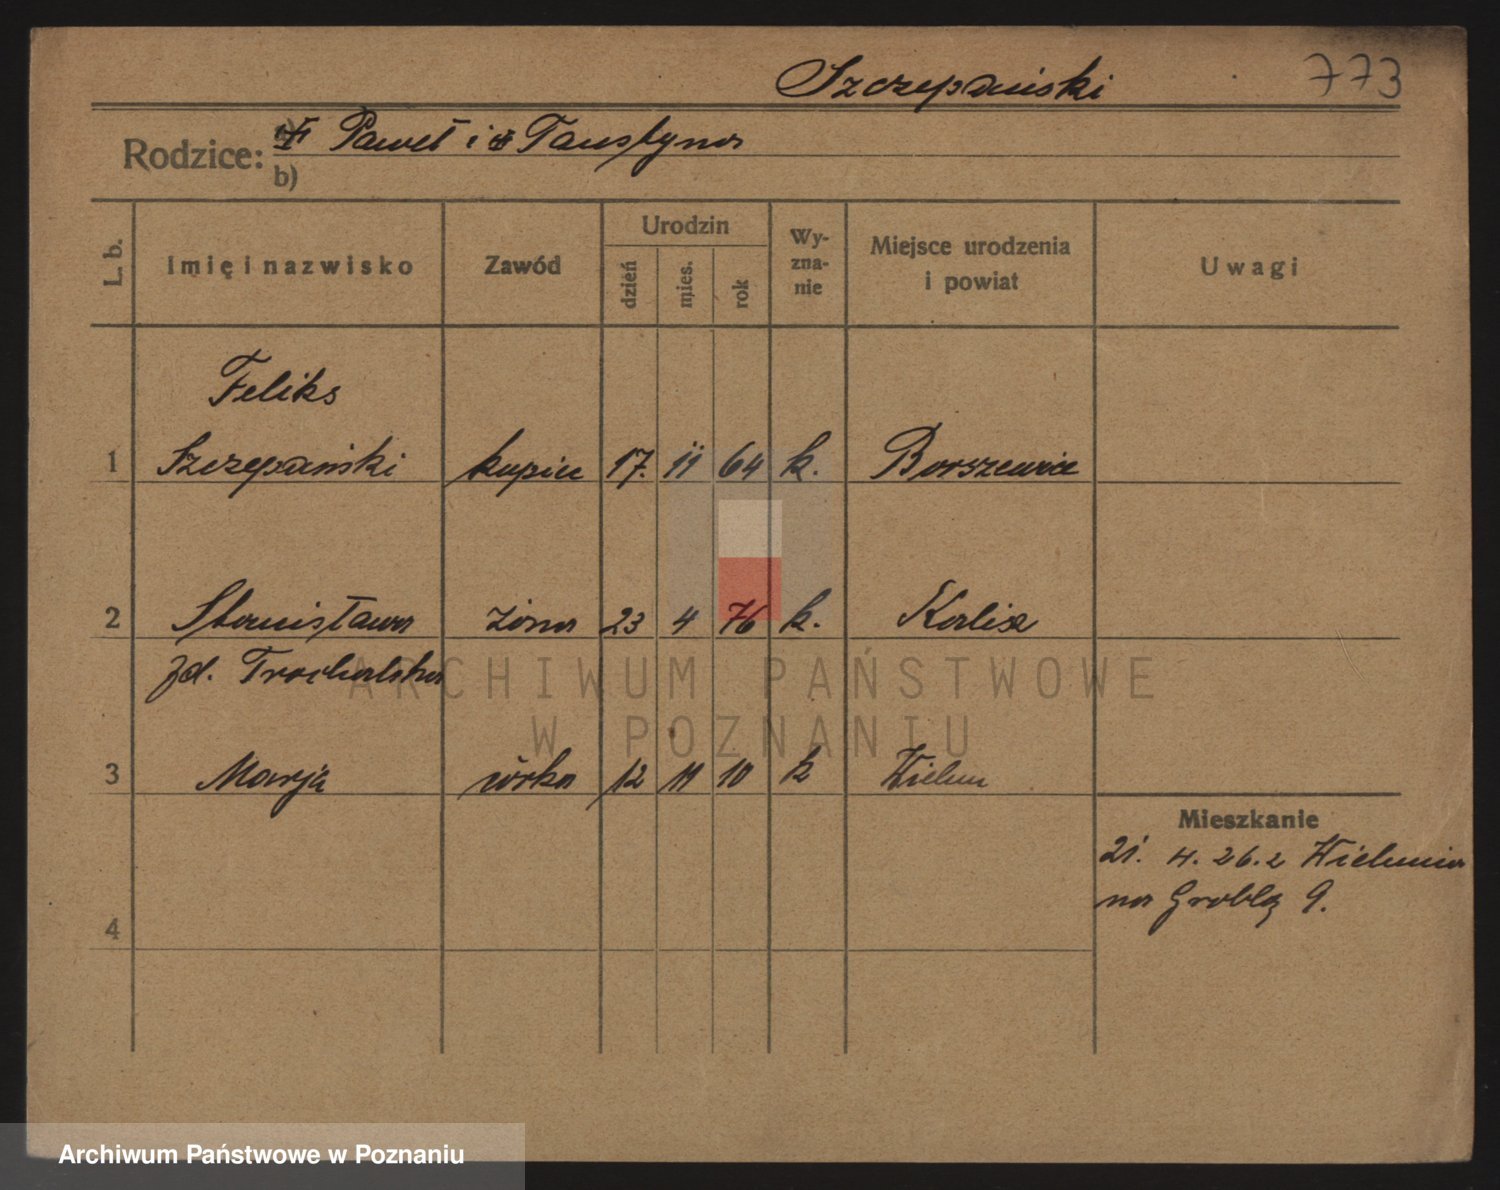 Szczepański 773
Rodzice: a) † Paweł i † Faustyna
b)
L. b. Imię i nazwisko Zawód Urodzin dzień mies. rok Wyznanie Miejsce urodzenia i powiat Uwagi
Feliks
1 Szczepański kupiec 17. 11 64 k. Borszewice
2 Stanisława żona 23 4 76 k. Kalisz
zd. Trochalska
3 Marja córka 12 11 10 k Wieluń
Mieszkanie
21. 4. 26. z Wielunia
na Groblą 9.
4
ARCHIWUM PAŃSTWOWE
W POZNANIU
Archiwum Państwowe w Poznaniu